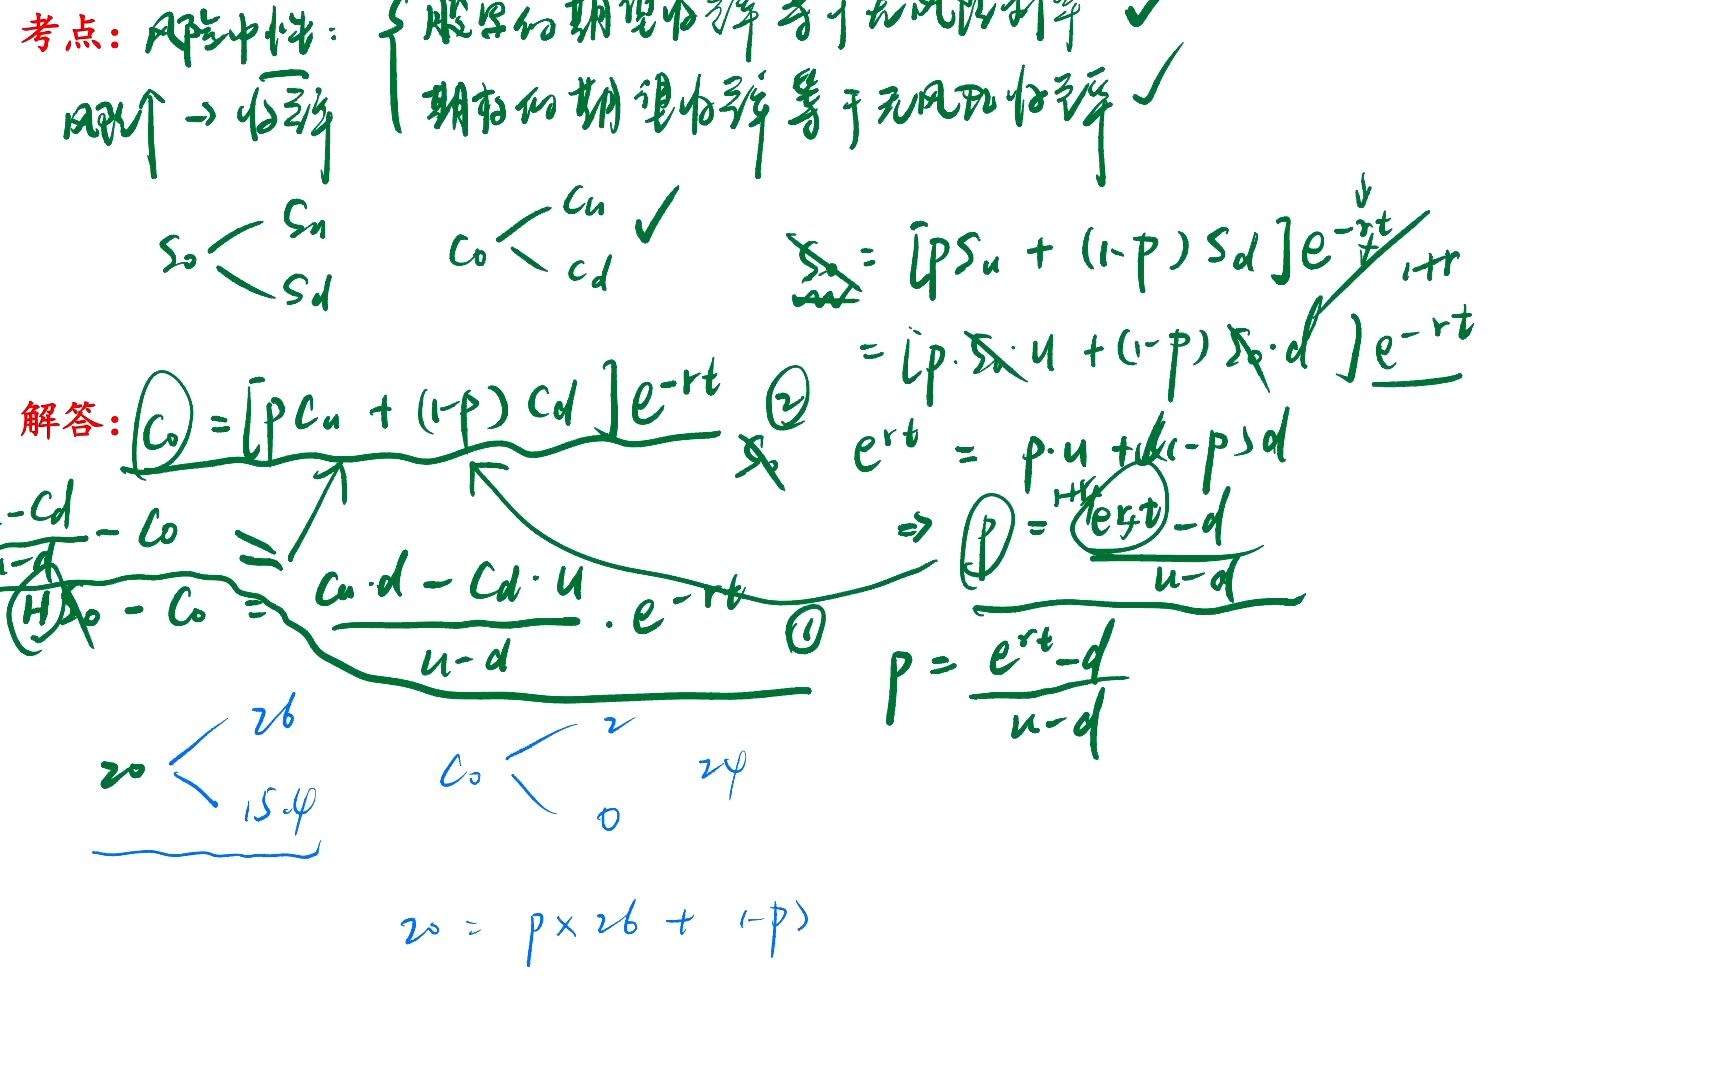 考点: 风险中性: 股票的期望收益率等于无风险利率 ✓
风险↑ → 收益率 期权的期望收益率等于无风险收益率 ✓
S₀ Su Sd C₀ Cu Cd ✓
S₀ = [pSu + (1-p) Sd] e^{-rt} 1+r
= [p·S₀·u + (1-p) S₀·d] e^{-rt}
解答: C₀ = [pCu + (1-p) Cd] e^{-rt} ②
S₀
e^{rt} = p·u + (1-p)d
⇒ p = \frac{e^{rt}-d}{u-d} 1+r
-Cd
-d
- C₀ =
H S₀ - C₀ = \frac{Cu·d - Cd·u}{u-d} · e^{-rt} ①
p = \frac{e^{rt}-d}{u-d}
20 26 15.4 C₀ 2 0 24
20 = p×26 + 1-p)